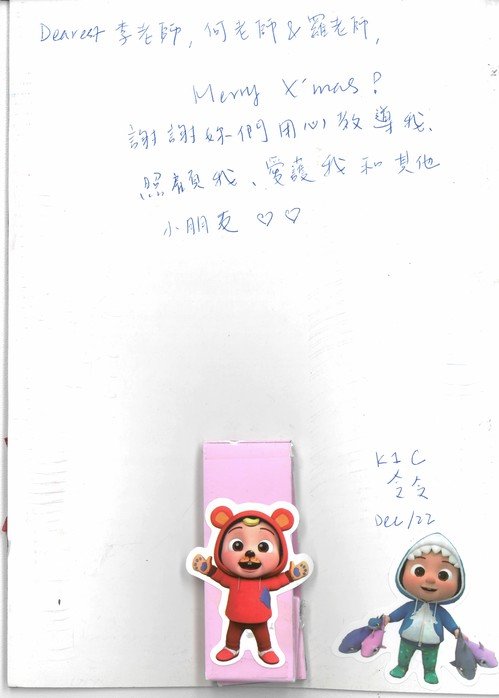 Dearest 李老師, 何老師 & 羅老師,
Merry X'mas!
謝謝妳們用心教導我、
照顧我、愛護我和其他
小朋友 ♡ ♡
K1C
令令
Dec/22